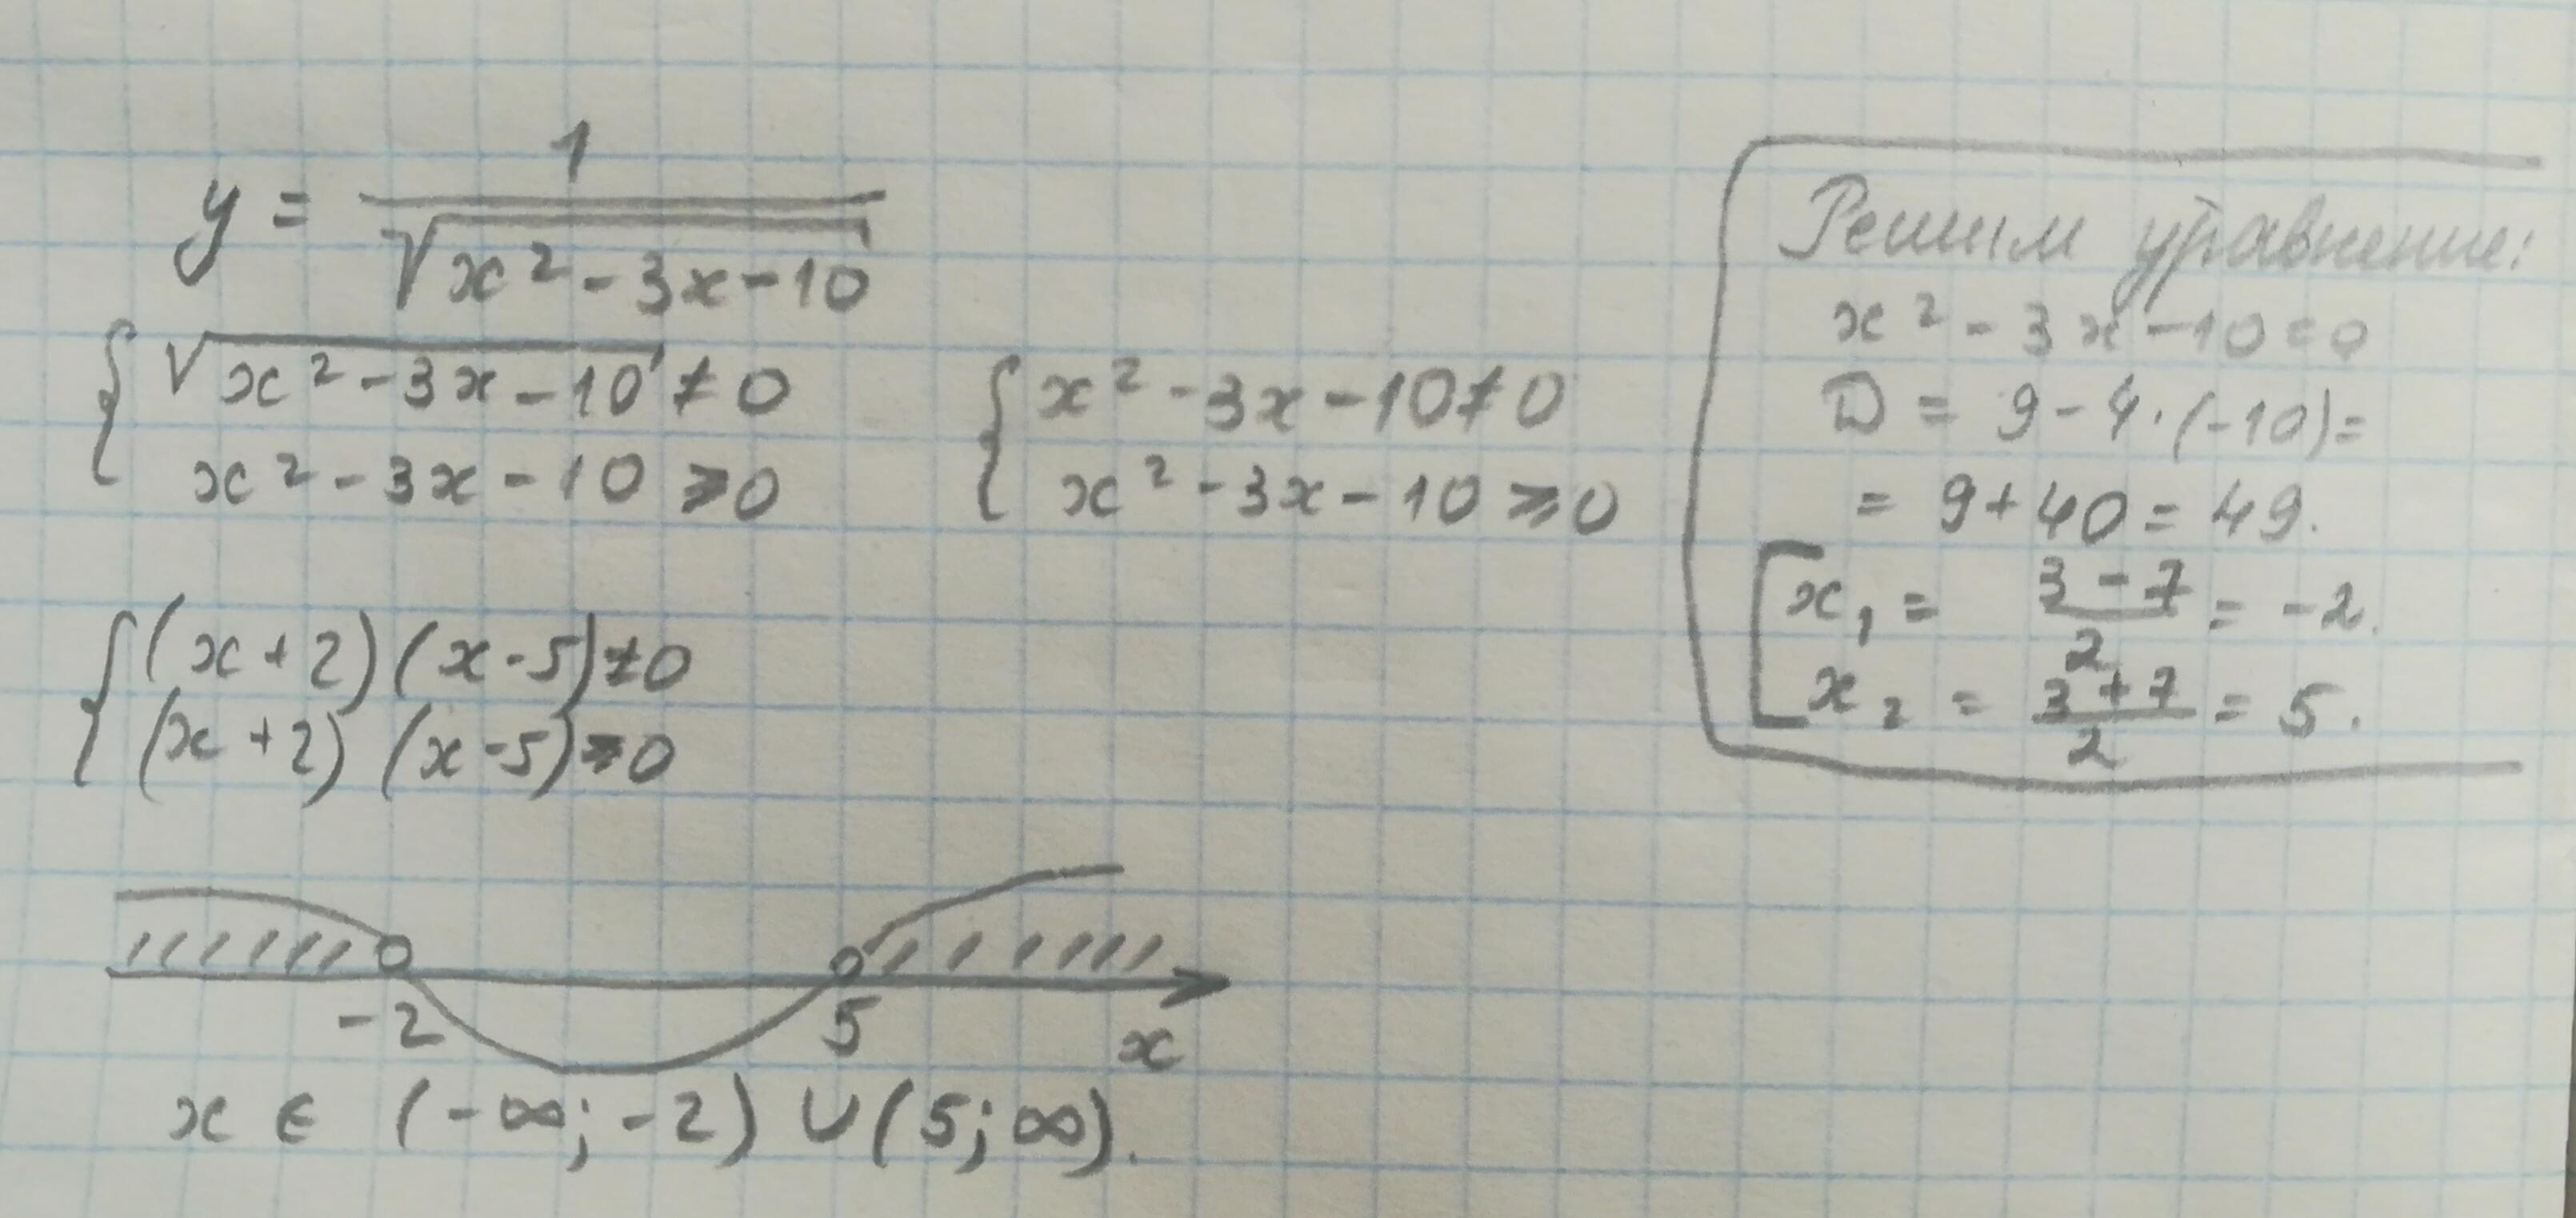 y = 1 / √(x² - 3x - 10)
{ √(x² - 3x - 10) ≠ 0
x² - 3x - 10 ⩾ 0
{ x² - 3x - 10 ≠ 0
x² - 3x - 10 ⩾ 0
{ (x + 2) (x - 5) ≠ 0
(x + 2) (x - 5) ⩾ 0
-2 5 x
x ∈ (-∞; -2) ∪ (5; ∞).
Решим уравнение:
x² - 3x - 10 = 0
D = 9 - 4 · (-10) =
= 9 + 40 = 49.
[ x₁ = (3 - 7) / 2 = -2.
x₂ = (3 + 7) / 2 = 5.